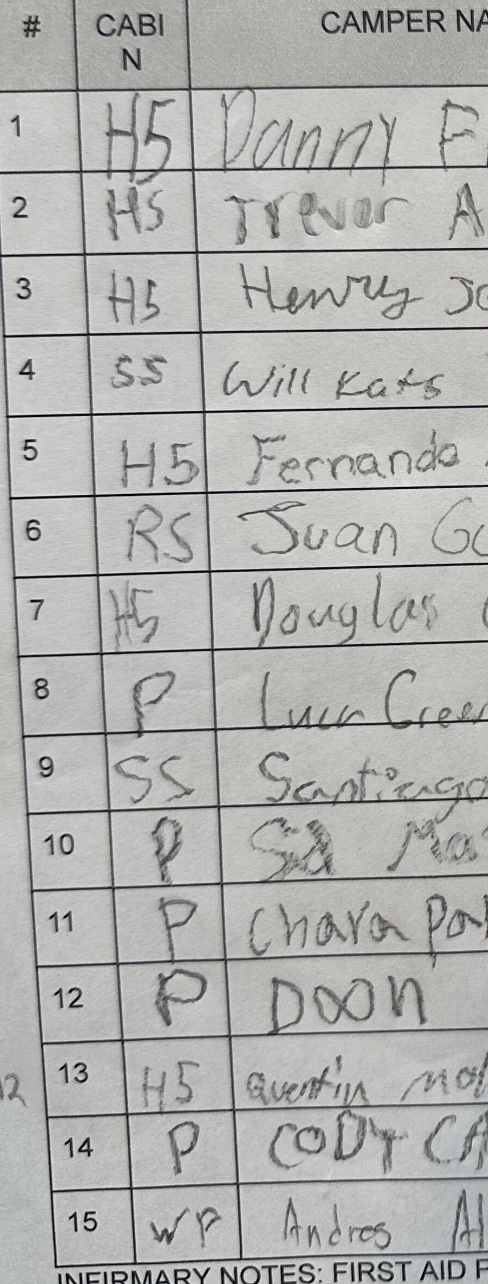 # CABI N CAMPER NA
1 H5 Danny F
2 H5 Trevor A
3 H5 Henry Jo
4 SS Will Kats
5 H5 Fernando
6 RS Juan Gu
7 H5 Douglas
8 P Luca Creen
9 SS Santiago
10 P Ma
11 P Chara Pal
12 P DOON
12
13 H5 Quentin mol
14 P CODY CA
15 WP Andres Al
INFIRMARY NOTES: FIRST AID F